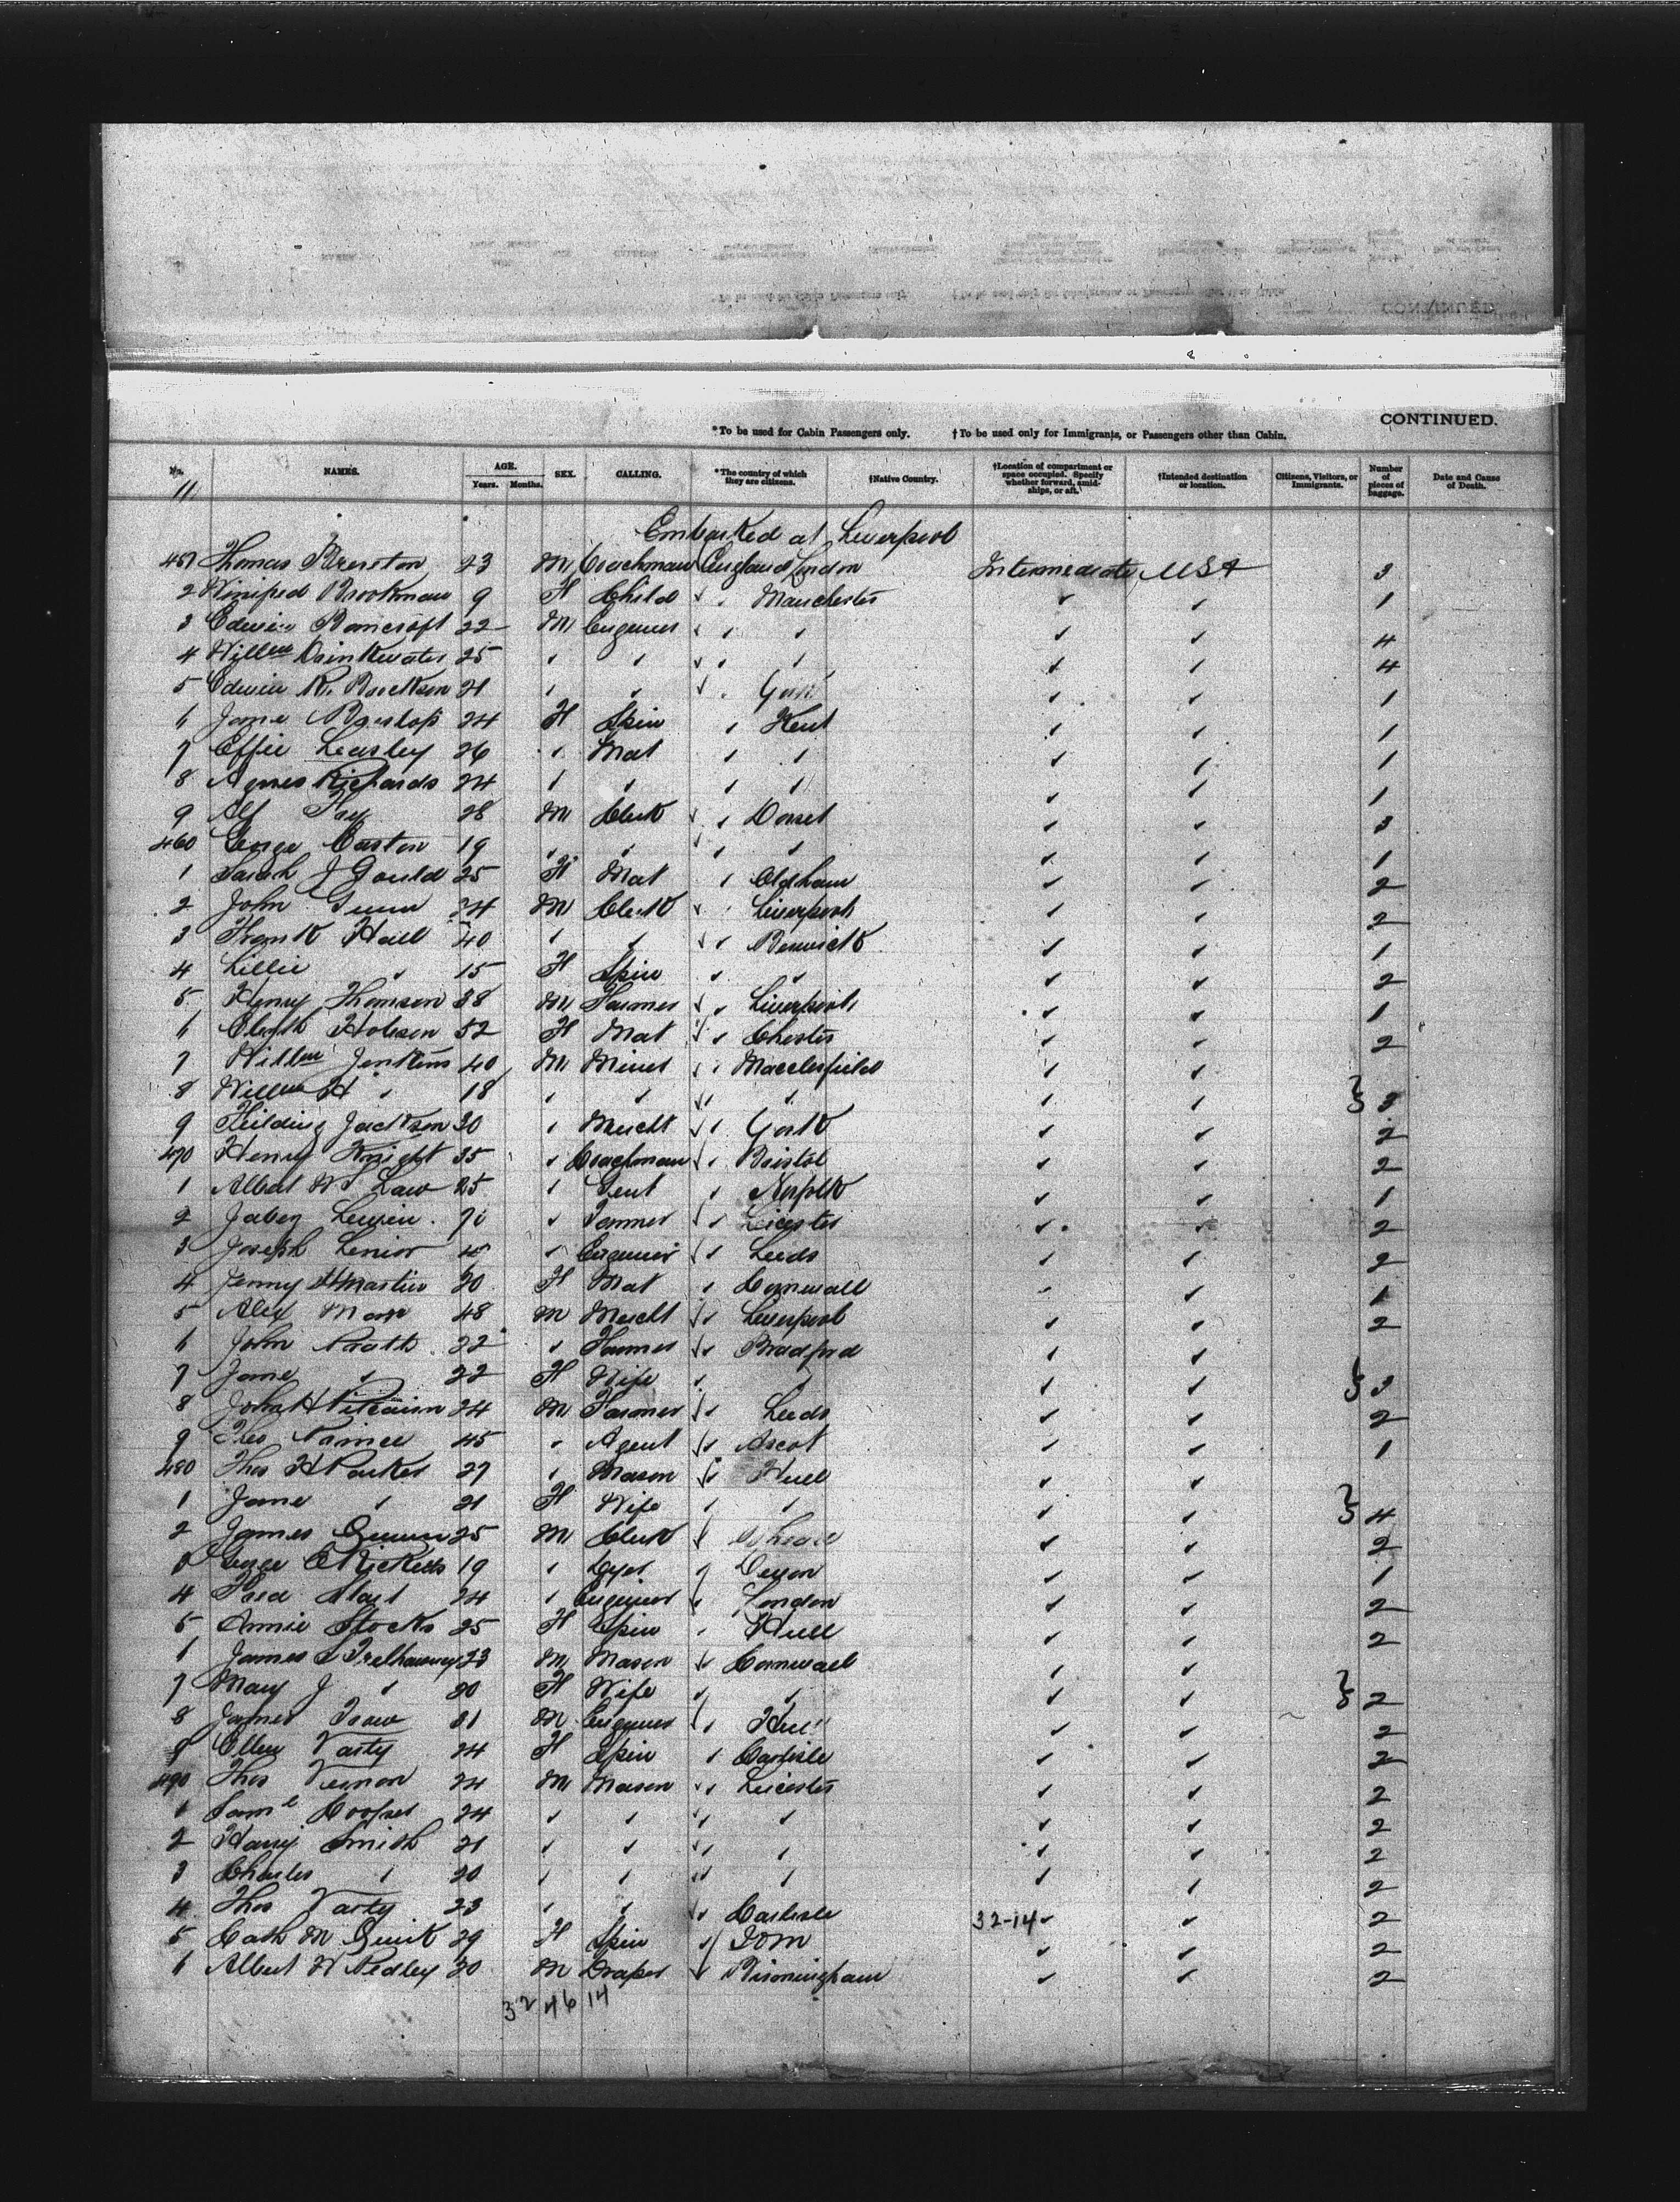 CONTINUED.
*To be used for Cabin Passengers only. †To be used only for Immigrants, or Passengers other than Cabin.
No. NAMES. AGE. Years. Months. SEX. CALLING. *The country of which they are citizens. †Native Country. †Location of compartment or space occupied. Specify whether forward, amidships, or aft. †Intended destination or location. Citizens, Visitors, or Immigrants. Number of pieces of baggage. Date and Cause of Death.
11
Embarked at Liverpool
451 Thomas 23 M Coachman England London Intermediate USA 3
2 Winifred Brookman 9 F Child Manchester 1
3 Edwin Bancroft 22 M Engineer 4
4 Willm Drinkwater 25 4
5 Edwin R. 21 York 1
6 Jane 24 F Spin Kent 1
7 Effie Leasley 26 Mat 1
8 Agnes Richards 24 1
9 Alf Fay 28 M Clerk Dorset 3
460 George Easton 19 1
1 Sarah J Gould 25 F Mat Oldham 2
2 John Gunn 24 M Clerk Liverpool 2
3 Frank Hall 40 Berwick 1
4 Lillie 15 F Spin 2
5 Henry Thomson 38 M Farmer Liverpool 1
6 Elizth Hobson 52 F Mat Chester 2
7 Willm Jenkins 40 M Miner Macclesfield
8 Willm H 18 3
9 Jackson 30 Mercht York 2
470 Henry Knight 35 Coachman Bristol 2
1 Albert W Law 25 Gent Norfolk 1
2 Jabez Lewin Leicester 2
3 Joseph Engineer Leeds 2
4 Jenny Martin 20 F Mat Cornwall 1
5 Alex 48 M Mercht Liverpool 2
6 John 22 Farmer Bradford
7 Jane 22 F Wife 3
8 John H Pitcairn 24 M Farmer Leeds 2
9 45 Agent Ascot 1
480 Thos H Parker 27 Mason Hull
1 Jane 21 F Wife 4
2 James 25 M Clerk 2
3 George C Ricketts 19 Dyer Devon 1
4 Fred 24 Engineer London 2
5 Annie Stocks 25 F Spin Hull 2
6 James Trelhawney 23 M Mason Cornwall
7 Mary J 20 F Wife 2
8 James 31 M Engineer Hull 2
9 Ellen Varty 24 F Spin Carlisle 2
490 Thos Vernon 24 M Mason Leicester 2
1 Saml Cooper 24 2
2 Harry Smith 21 2
3 Charles 20 2
4 Thos Varty 23 Carlisle 32-14 2
5 Cath M Quirk 29 F Spin IOM 2
6 Albert W Pedley 20 M Draper Birmingham 2
32 46 14